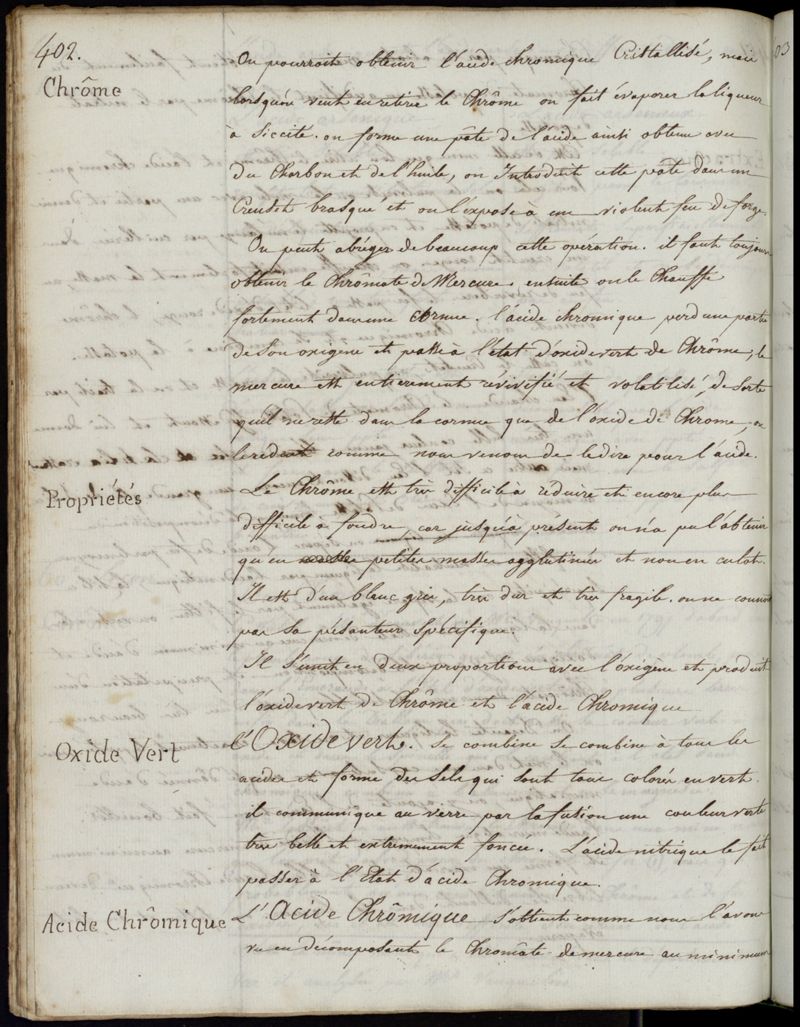 402.
Chrôme
On pourroit obtenir l'acide chromique Cristallisé, mais
lorsqu'on veut en retirer le Chrôme on fait évaporer la liqueur
à siccité. on forme une pâte de l'acide ainsi obtenu avec
du Charbon et de l'huile, on Introduit cette pâte dans un
Creuset brasqué et on l'expose à un violent feu de forge.
On peut abréger de beaucoup cette opération. il faut toujours
obtenir le Chrômate de Mercure. ensuite on le Chauffe
fortement dans une cornue. l'acide chromique perd une partie
de son oxigene et passe à l'état d'oxide vert de Chrôme, le
mercure est entierement révivifié et volatilisé, de sorte
qu'il ne reste dans la cornue que de l'oxide de Chrome, on
le reduit comme nous venons de le dire pour l'acide.
Propriétés
Le Chrôme est très difficile à réduire et encore plus
difficile a fondre, car jusqu'à present on n'a pu l'obtenir
qu'en petites masses agglutinées et non en culot.
Il est d'un blanc gris, très dur et très fragile. on ne connoit
pas sa pésanteur spécifique.
Il s'unit en deux proportions avec l'oxigène et produit
l'oxide vert de Chrôme et l'acide Chromique
Oxide Vert
l'Oxide vert. se combine se combine à tous les
acides et forme des sels qui sont tous colorés en vert.
il communique au verre par la fusion une couleur verte
très belle et extremement foncée. L'acide nitrique le fait
passer à l'Etat d'acide Chromique.
Acide Chrômique
L'Acide Chrômique s'obtient comme nous l'avons
vu en décomposant le Chromâte de mercure au minimum